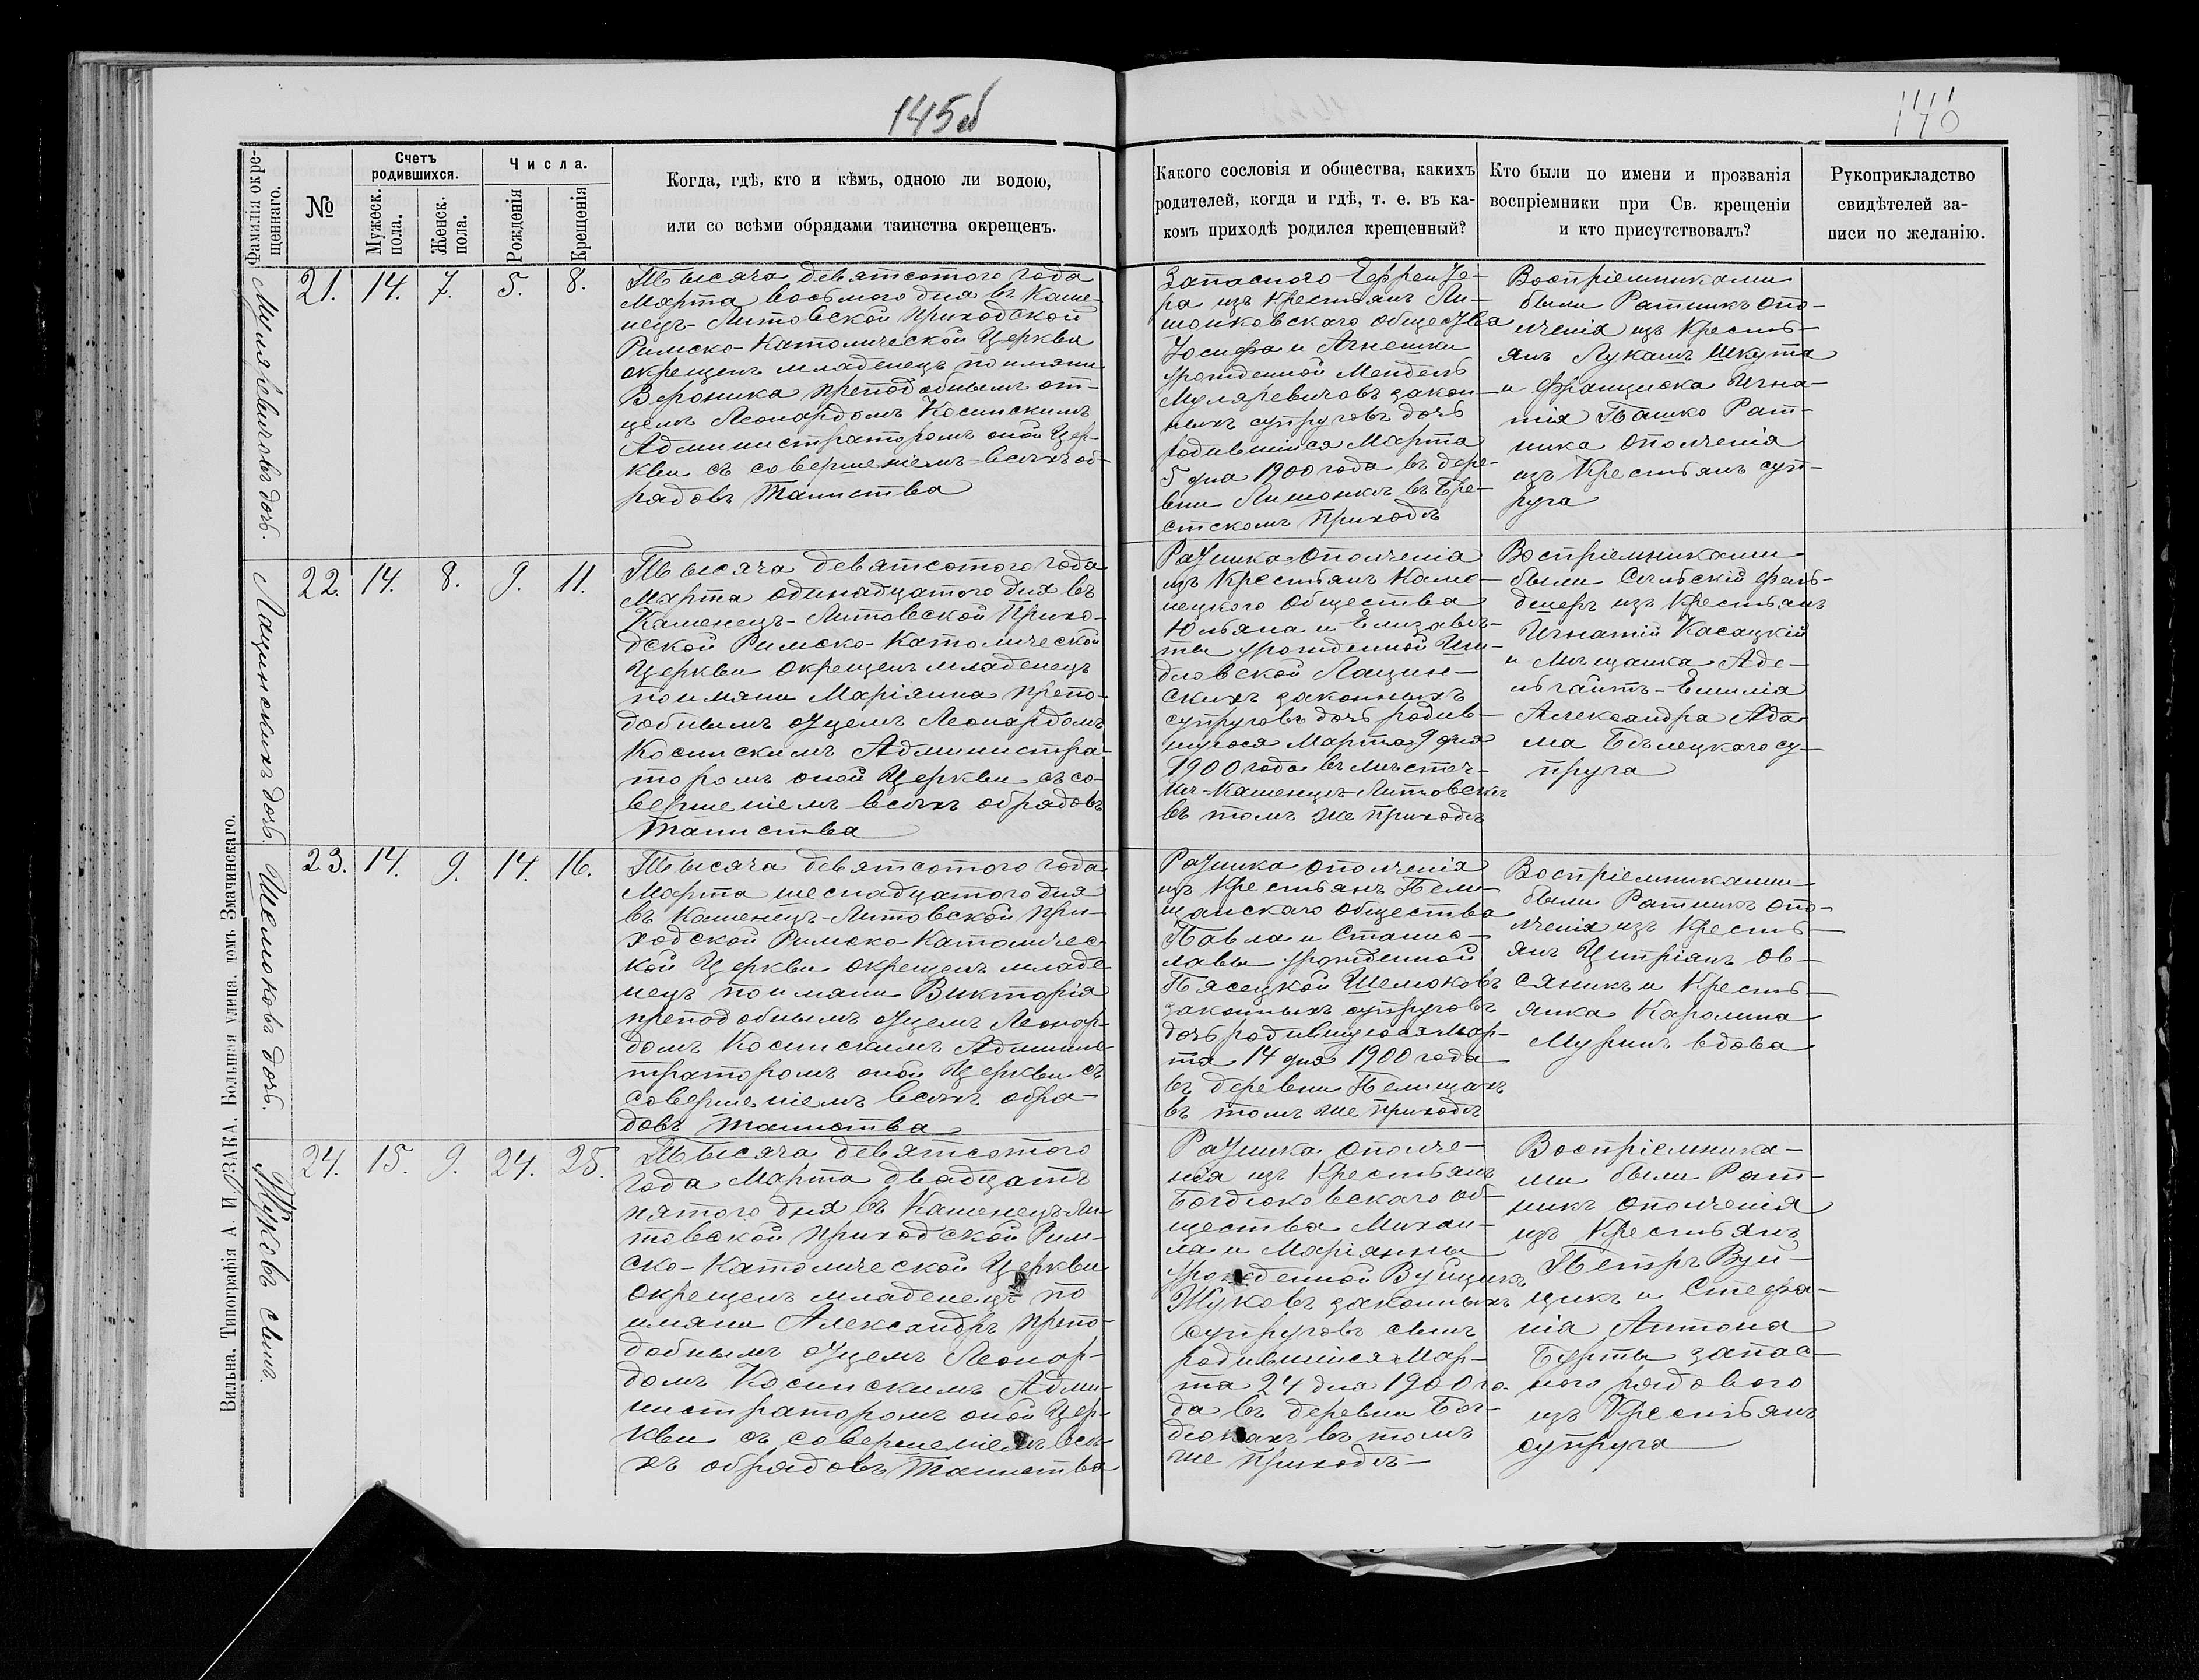 145 об
170
Фамилія окре-
щеннаго.
№
Счетъ
родившихся.
Мужеск.
пола.
Женск.
пола.
Числа.
Рожденія
Крещенія
Когда, гдѣ, кто и кѣмъ, одною ли водою,
или со всѣми обрядами таинства окрещенъ.
Какого сословія и общества, какихъ
родителей, когда и гдѣ, т. е. въ ка-
комъ приходѣ родился крещенный?
Кто были по имени и прозванія
воспріемники при Св. крещеніи
и кто присутствовалъ?
Рукоприкладство
свидѣтелей за-
писи по желанію.
Муляревичовъ дочь.
21. 14. 7. 5. 8.
Тысяча девятсотого года
Марта восьмого дня въ Каме-
нецъ-Литовской Приходской
Римско-Католической Церкви
окрещенъ младенецъ по имяни
Вероника преподобнымъ от-
цемъ Леонардомъ Косинскимъ
Администраторомъ оной Цер-
кви съ совершеніемъ всѣхъ об-
рядовъ Таинства
Запасного Ефрейто-
ра изъ крестьянъ Ли-
шонковского общества
Іосифа и Агнешки
урожденной Мендель
Муляревичовъ закон-
ныхъ супруговъ дочь
родившійся Марта
5 дня 1900 года въ дере-
вни Лишонкѣ въ Бре-
стскомъ приходѣ
Воспріемниками
были Ратникъ опо-
лченія изъ Кресть-
янъ Лукашъ Шкута
и Францишка Игна-
тія Пашко Рат-
ника ополченія
изъ Крестьянъ суп-
руга
Лацинскихъ дочь.
22. 14. 8. 9. 11.
Тысяча девятсотого года
Марта одинадцатого дня въ
Каменецъ-Литовской Прихо-
дской Римско-Католической
Церкви окрещенъ младенецъ
по имяни Маріянна препо-
добнымъ отцемъ Леонардомъ
Косинскимъ Администра-
торомъ оной Церкви съ со-
вершеніемъ всѣхъ обрядовъ
Таинства
Ратника ополченія
изъ Крестьянъ Каме-
нецкого общества
Юльяна и Елизаве-
ты урожденной Ши-
дловской Лацин-
скихъ законныхъ
супруговъ дочь родив-
шуюся Марта 9 дня
1900 года въ мѣстеч-
кѣ-Каменцѣ-Литовскѣ
въ томъ же приходѣ
Воспріемниками
были Сельскій фель-
дшеръ изъ Крестьянъ
Игнатій Касацкій
и Мѣщанка Аде-
льгаитъ-Емилія
Александра Ада-
ма Бѣлецкаго су-
пруга
Шемюковъ дочь.
23. 14. 9. 14. 16.
Тысяча девятсотого года
Марта шеснадцатого дня
въ Каменецъ-Литовской При-
ходской Римско-Католичес-
кой Церкви окрещенъ младе-
нецъ по имяни Викторія
преподобнымъ отцемъ Леонар-
домъ Косинскимъ Админис-
траторомъ оной Церкви съ
совершеніемъ всѣхъ обря-
довъ Таинства
Ратника ополченія
изъ Крестьянъ Пели-
щанскаго общества
Павла и Станис-
лавы урожденной
Пясецкой Шемюковъ
законныхъ супруговъ
дочь родившуюся Мар-
та 14 дня 1900 года
въ деревни Пелищахъ
въ томъ же приходѣ
Воспріемниками
были Ратникъ опо-
лченія изъ Кресть-
янъ Ципріянъ Ов-
сяникъ и Кресть-
янка Каролина
Муринъ вдова
Жуковъ сынъ.
24. 15. 9. 24. 25.
Тысяча девятсотого
года Марта двадцать
пятого дня въ Каменецъ-Ли-
товской приходской Рим-
ско-Католической Церкви
окрещенъ младенецъ по
имяни Александръ препо-
добнымъ отцемъ Леонар-
домъ Косинскимъ Адми-
нистраторомъ оной Цер-
кви съ совершеніемъ всѣ-
хъ обрядовъ Таинства
Ратника ополче-
нія изъ Крестьянъ
Богдюковскаго об-
щества Михаи-
ла и Маріянны
урожденной Вуйцикъ
Жуковъ законныхъ
супруговъ сынъ
родившійся Мар-
та 24 дня 1900 го-
да въ деревни Бог-
дюкахъ въ томъ
же приходѣ
Воспріемника-
ми были Рат-
никъ ополченія
изъ Крестьянъ
Петръ Вуй-
цикъ и Стефа-
нія Антона
Бурты запас-
ного рядового
изъ Крестьянъ
супруга
Вильна. Типографія А. И. ОЗАКА. Большая улица, домъ Змачинскаго.